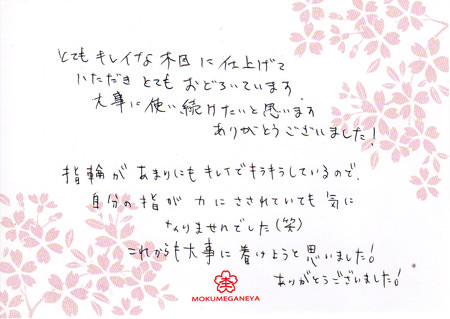 とてもキレイな木目に仕上げて
いただきとてもおどろいています。
大事に使い続けたいと思います
ありがとうございました!
指輪があまりにもキレイでキラキラしているので、
自分の指がカにさされていても気に
なりませんでした(笑)
これからも大事に着けようと思いました!
ありがとうございました!
MOKUMEGANEYA